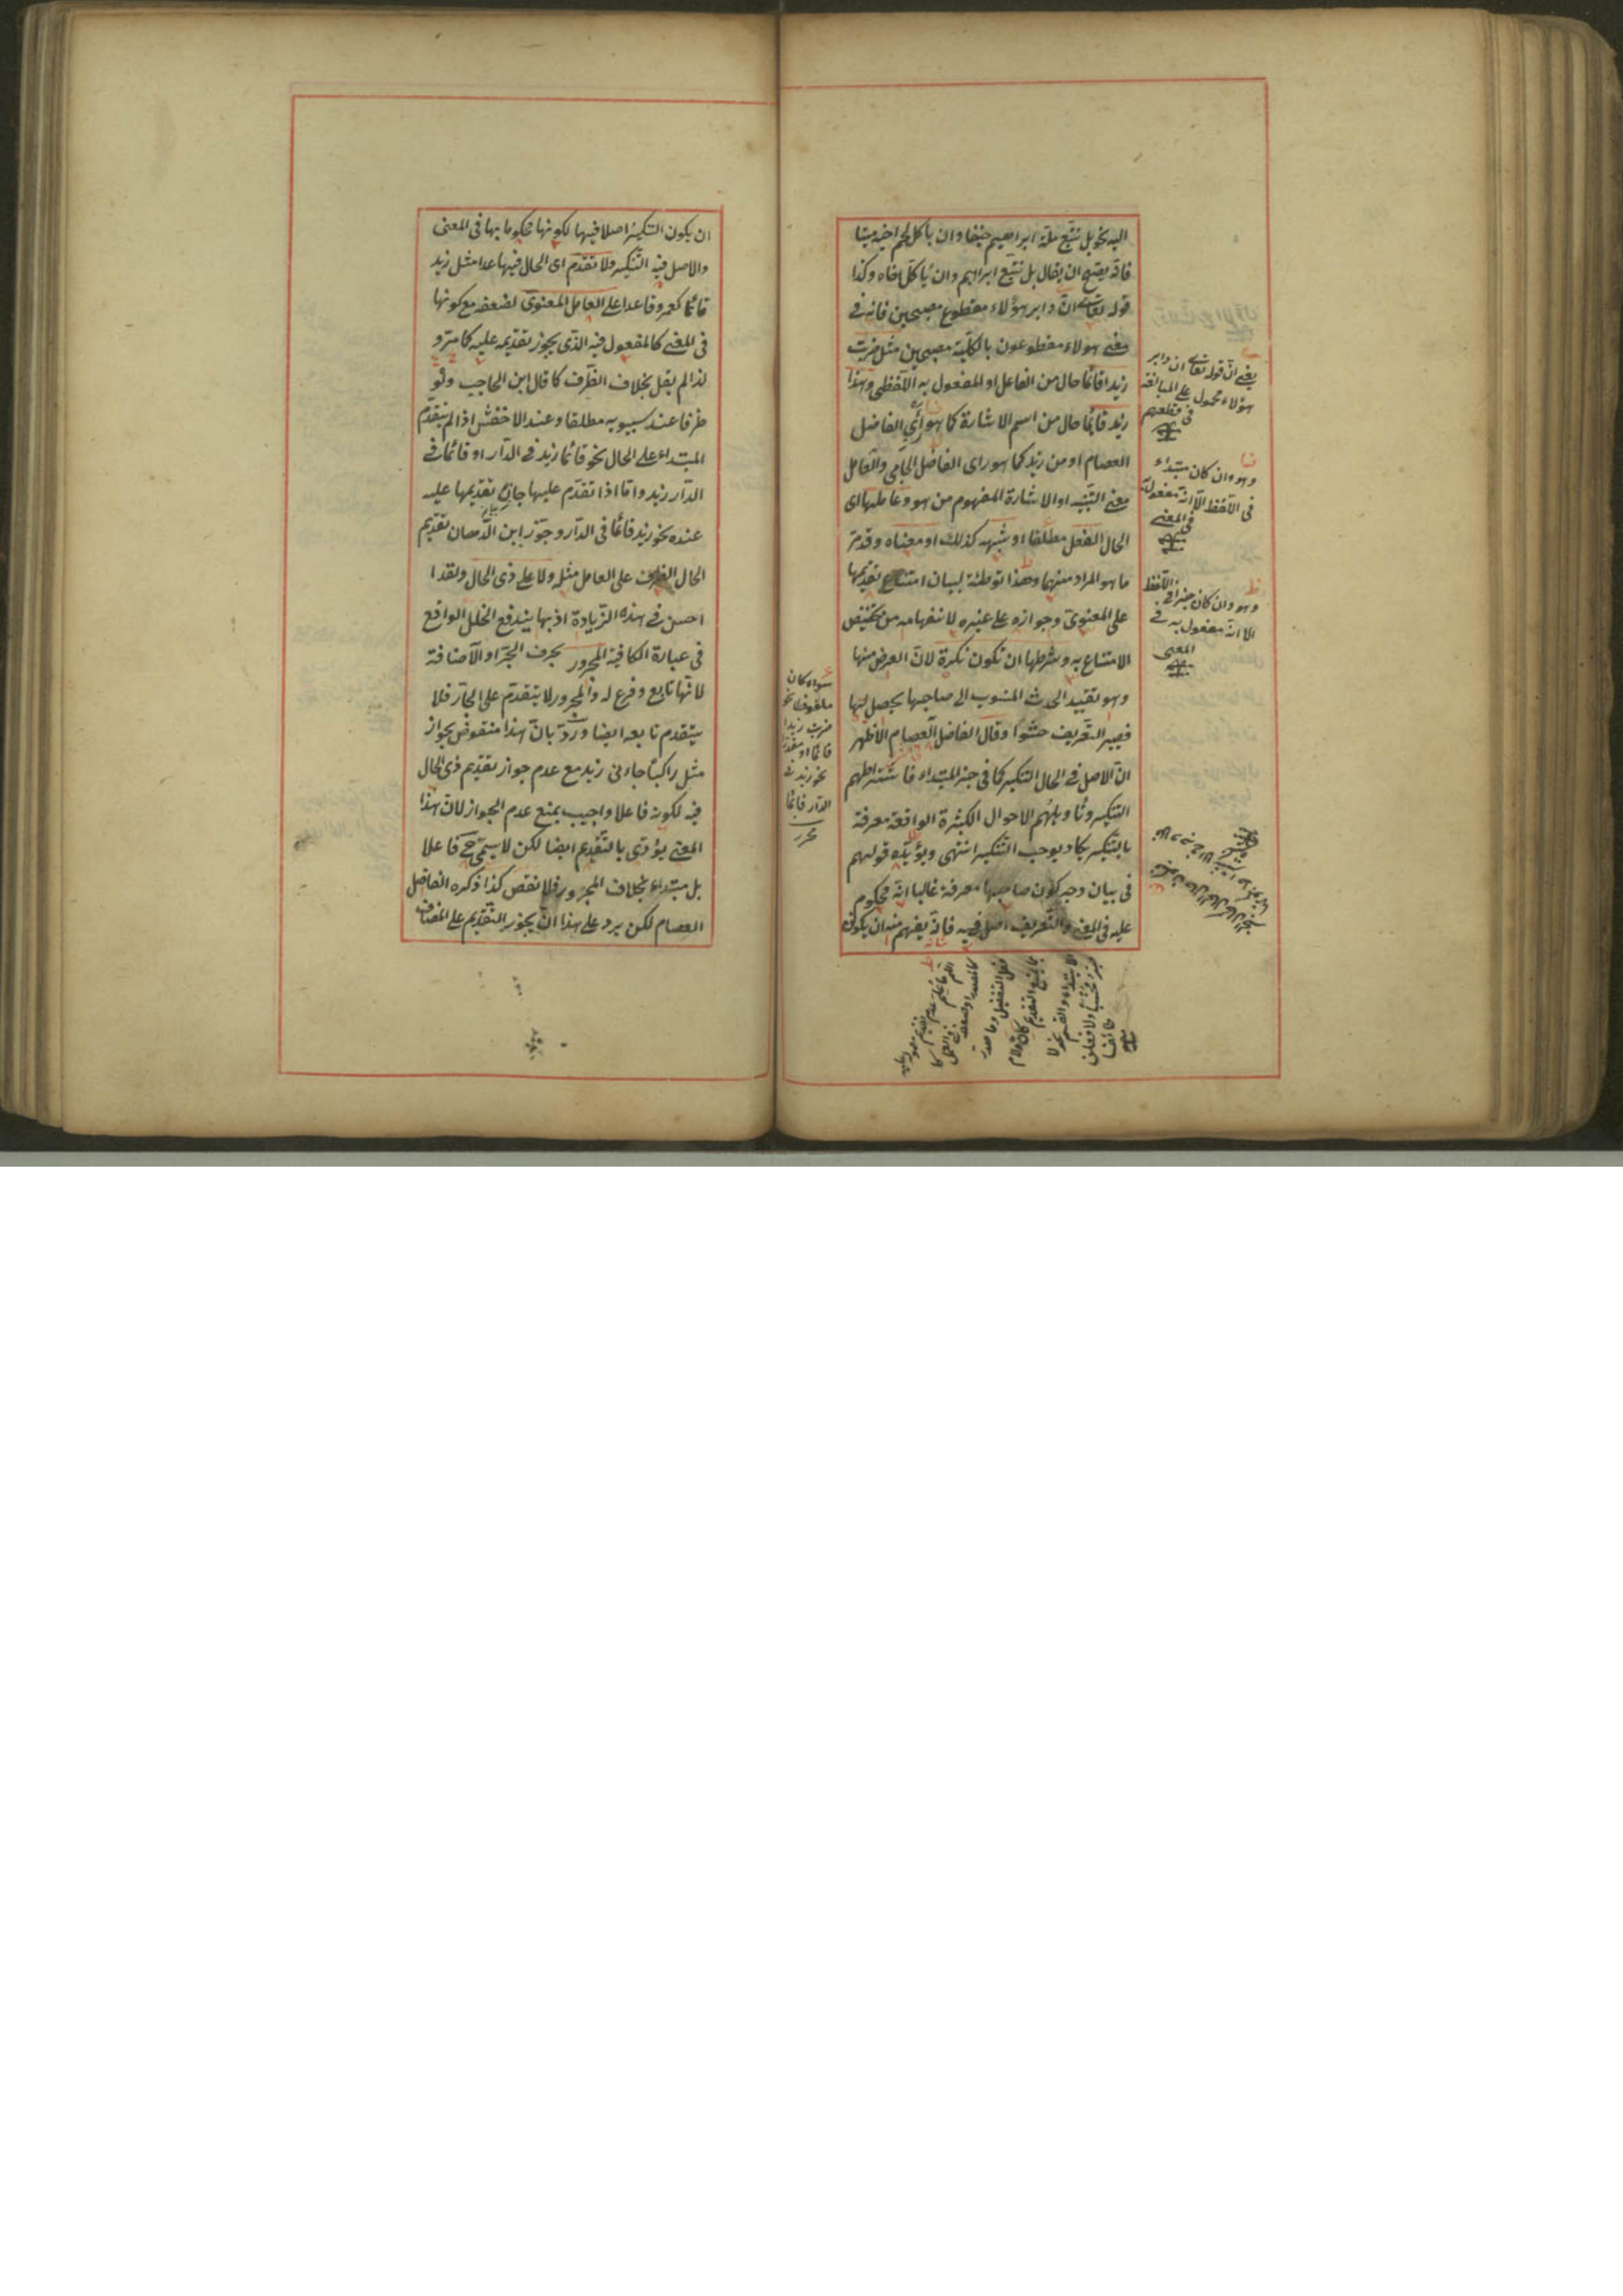 اليه نحو بل نتبع ملة ابراهيم حنيفا وان ياكل لحم اخيه ميتا
فانه يصح ان يقال بل نتبع ابراهيم وان ياكل اخاه وكذا
قوله تعالى ان دابر هؤلاء مقطوع مصبحين فانه فى
معنى هؤلاء مقطوعون بالكلية مصبحين مثل ضربت
زيدا قائما حال من الفاعل او المفعول به اللفظى وهذا
زيد قائما حال من اسم الاشارة كما هو رأى الفاضل
العصام او من زيد كما هو راى الفاضل الجامى والعامل
معنى التنبيه او الاشارة المفهوم من هو وعاملها اى
الحال الفعل مطلقا او شبهه كذلك او معناه وقد مر
ما هو المراد منهما وهذا توطئة لبيان امتناع تقديمها
على المعنوى وجوازه على غيره لانفهامه من تخصيص
الامتناع به وشرطها ان تكون نكرة لان الغرض منها
وهو تقييد الحدث المنسوب الى صاحبها يحصل بها
فيصير التعريف حشوا وقال الفاضل العصام الاظهر
ان الاصل فى الحال التنكير كما فى خبر المبتداء فاشتراطهم
التنكير وتاويلهم الاحوال الكثيرة الواقعة معرفة
بالتنكير يكاد يوجب التنكير انتهى ويؤيده قولهم
فى بيان وجه كون صاحبها معرفة غالبا انه محكوم
عليه فى المعنى والتعريف اصل فيه فانه يفهم منه ان يكون
يعنى ان قوله تعالى ان دابر
هؤلاء محمول على المبالغة
فى قطعهم
وهو وان كان مبتداء
فى اللفظ الا انه مفعول
فى المعنى
وهو وان كان خبرا فى اللفظ
الا انه مفعول به فى
المعنى
سواء كان
ملفوظا نحو
ضربت زيدا
قائما او مقدرا
نحو زيد فى
الدار قائما
محرر
ان يكون التنكير اصلا فيها لكونها محكوما بها فى المعنى
والاصل فيه التنكير ولا تقدم اى الحال فيما عدا مثل زيد
قائما كعمرو قاعدا على العامل المعنوى لضعفه مع كونها
فى المعنى كالمفعول فيه الذى يجوز تقديمه عليه كما مر و
لذا لم يقل بخلاف الظرف كما قال ابن الحاجب ولو
ظرفا عند سيبويه مطلقا وعند الاخفش اذا لم يتقدم
المبتداء على الحال نحو قائما زيد فى الدار او قائما فى
الدار زيد واما اذا تقدم عليها جاز تقديمها عليه
عنده نحو زيد قائما فى الدار وجوز ابن الدهان تقديم
الحال الظرف على العامل مثله ولا على ذى الحال ولقد ا
احسن فى هذه الزيادة اذ بها يندفع الخلل الواقع
فى عبارة الكافية المجرور بحرف الجر او الاضافة
لانها تابع وفرع له والمجرور لا يتقدم على الجار فلا
يتقدم تابعه ايضا ورد بان هذا منقوض بجواز
مثل راكبا جاءنى زيد مع عدم جواز تقديم ذى الحال
فيه لكونه فاعلا واجيب بمنع عدم الجواز لان هذا
المعنى يؤدى بالتقديم ايضا لكن لا يسمى ح فاعلا
بل مبتداء بخلاف المجرور فلا نقض كذا ذكره الفاضل
العصام لكن يرد على هذا ان يجوز التقديم على المضاف